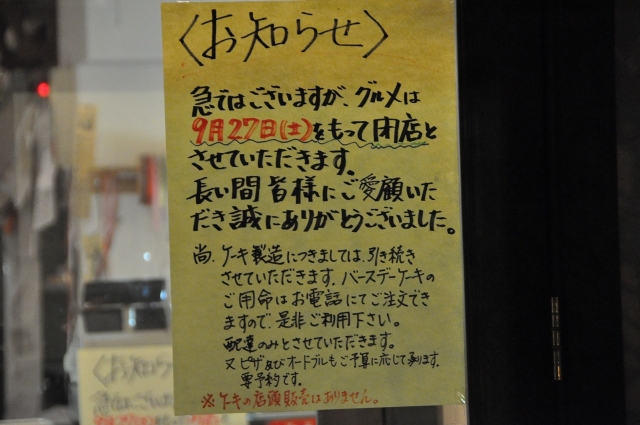 〈お知らせ〉
急ではございますが、グルメは
9月27日(土)をもって閉店と
させていただきます。
長い間皆様にご愛顧いた
だき誠にありがとうございました。
尚、ケーキ製造につきましては、引き続き
させていただきます。バースデーケーキの
ご用命はお電話にてご注文でき
ますので、是非ご利用下さい。
配達のみとさせていただきます。
又ピザ及びオードブルもご予算に応じて承ります。
要予約です。
※ケーキの店頭販売はありません。
〈お知らせ
急ではございま